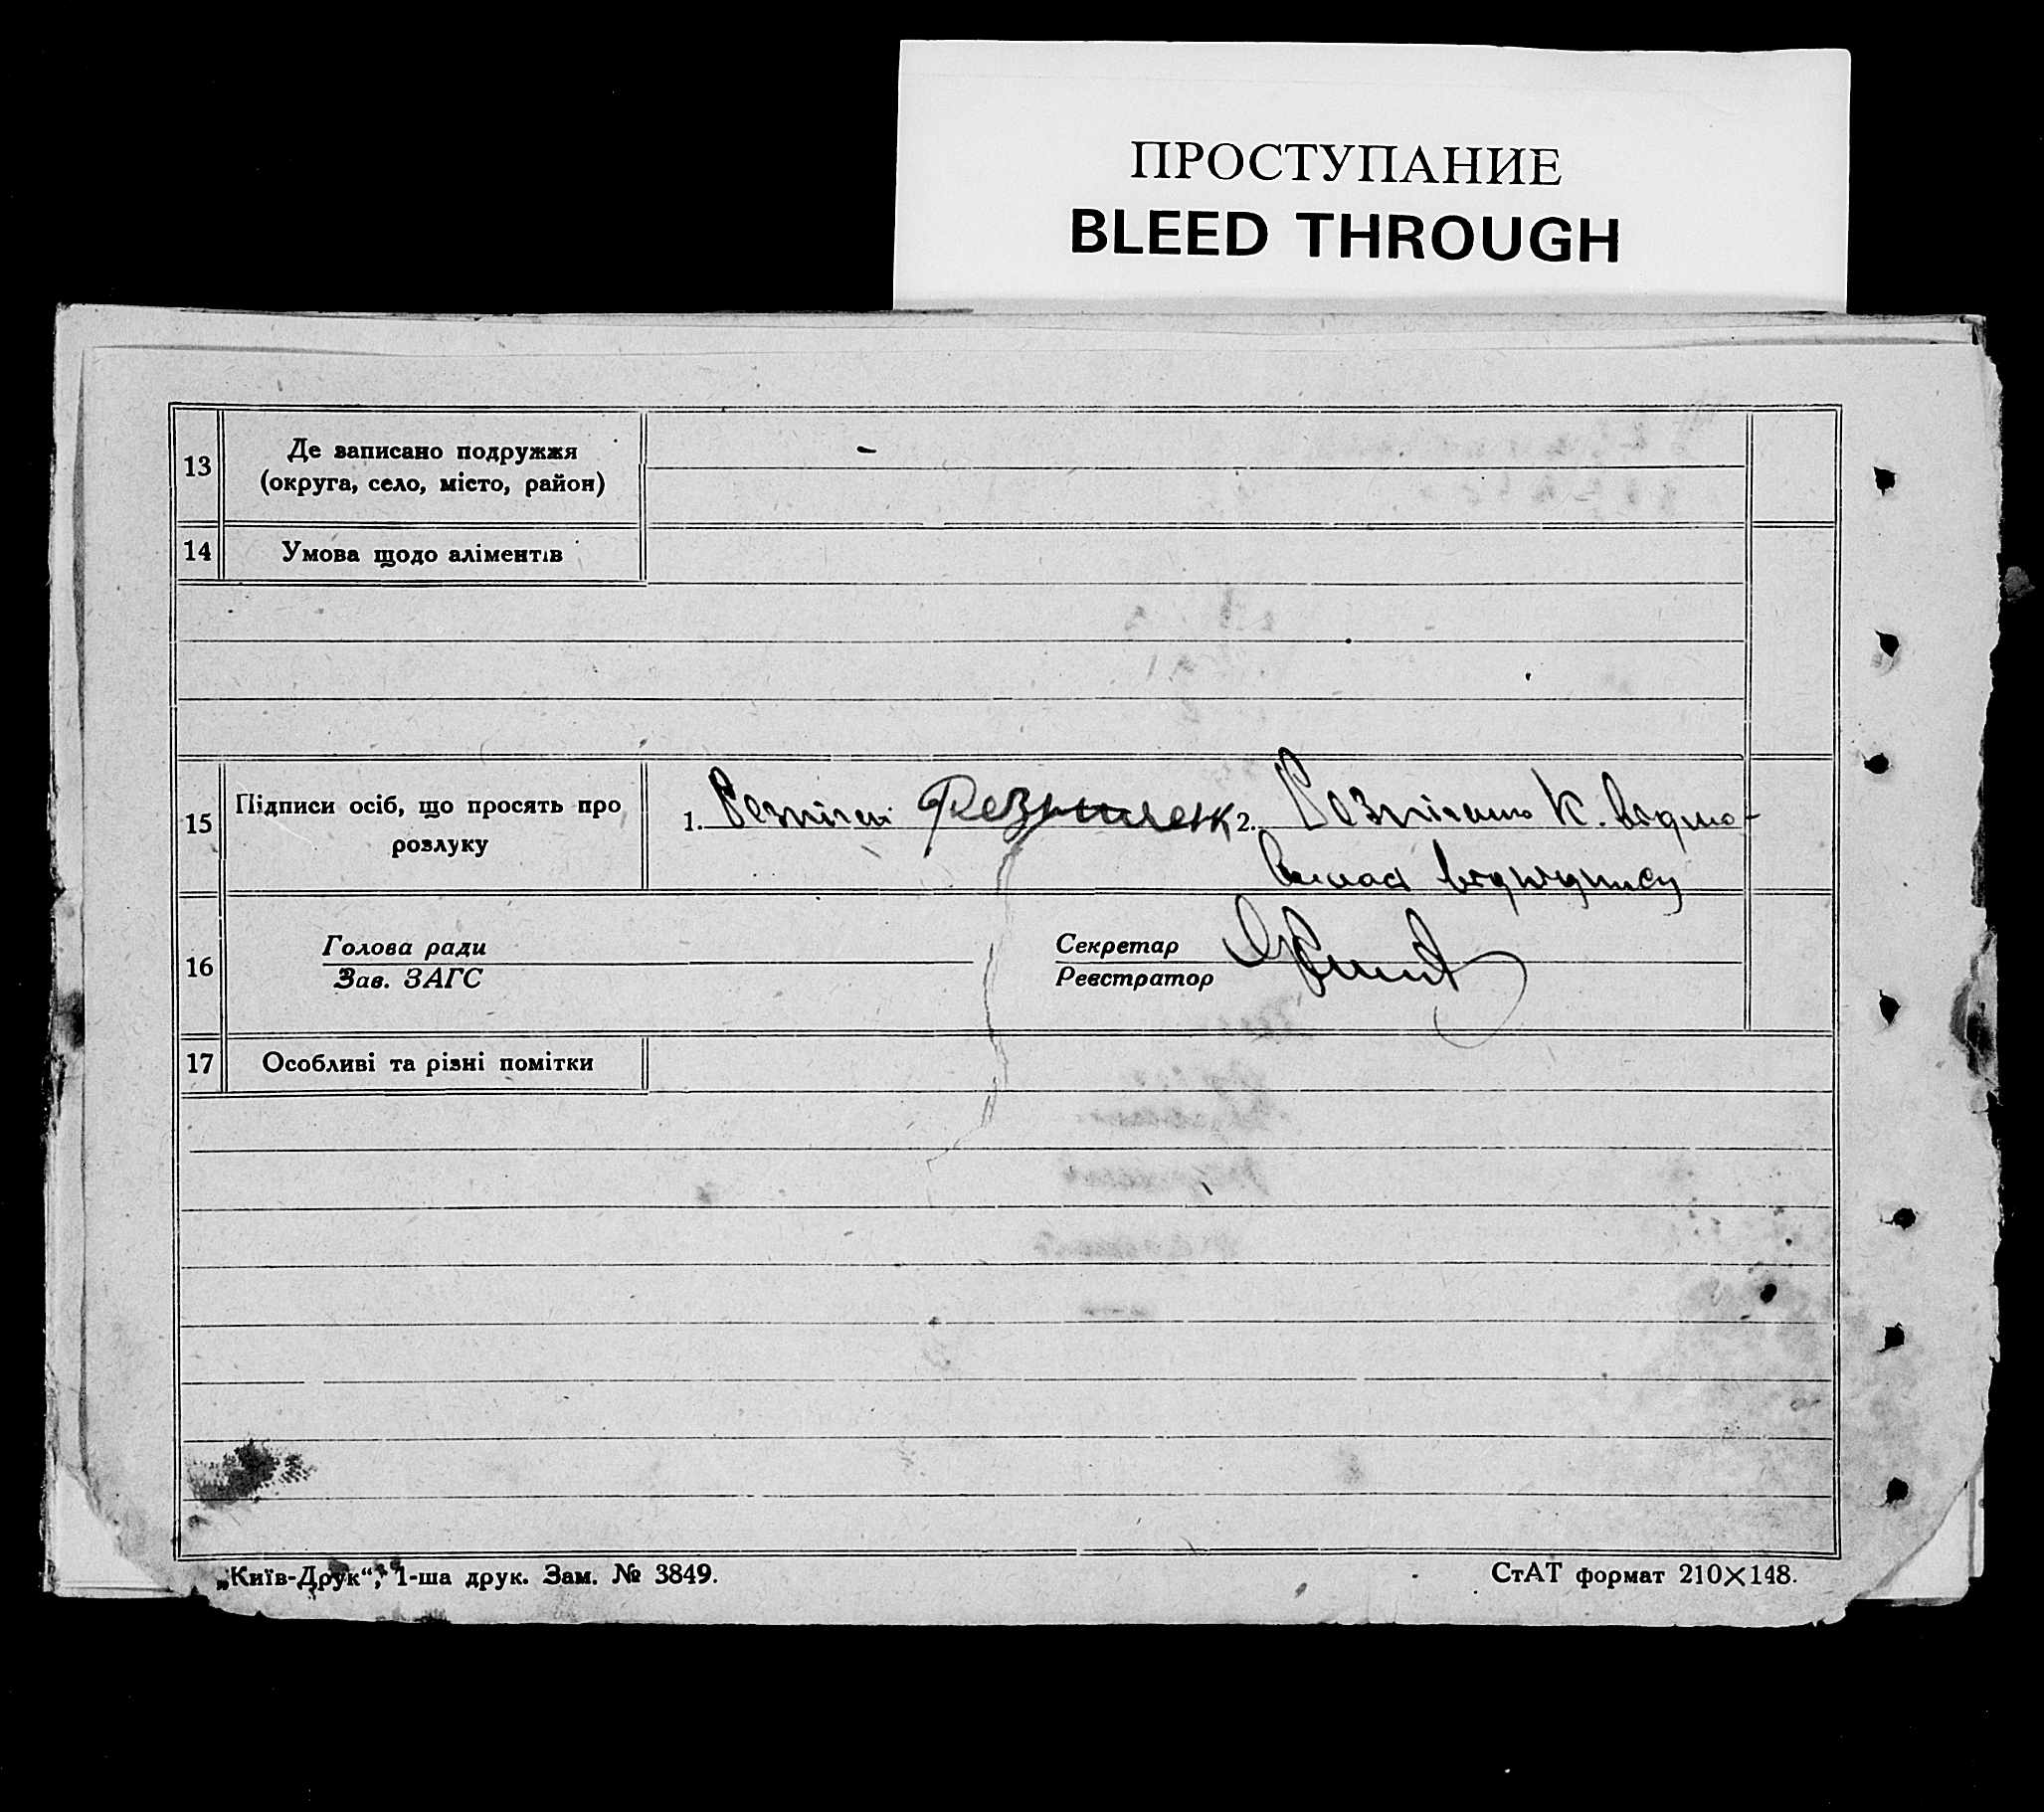 ПРОСТУПАНИЕ
BLEED THROUGH
13
Де записано подружжя
(округа, село, місто, район)
-
14
Умова щодо аліментів
15
Підписи осіб, що просять про
розлуку
1.
2.
К. відмо-
від підпису
16
Голова ради
Зав. ЗАГС
Секретар
Реєстратор
17
Особливі та різні помітки
„Київ-Друк“, 1-ша друк. Зам. № 3849.
СтАТ формат 210×148.